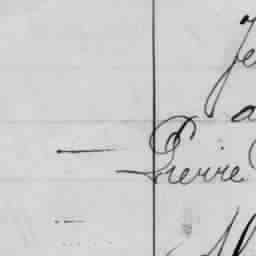 Je
a
— Pierre